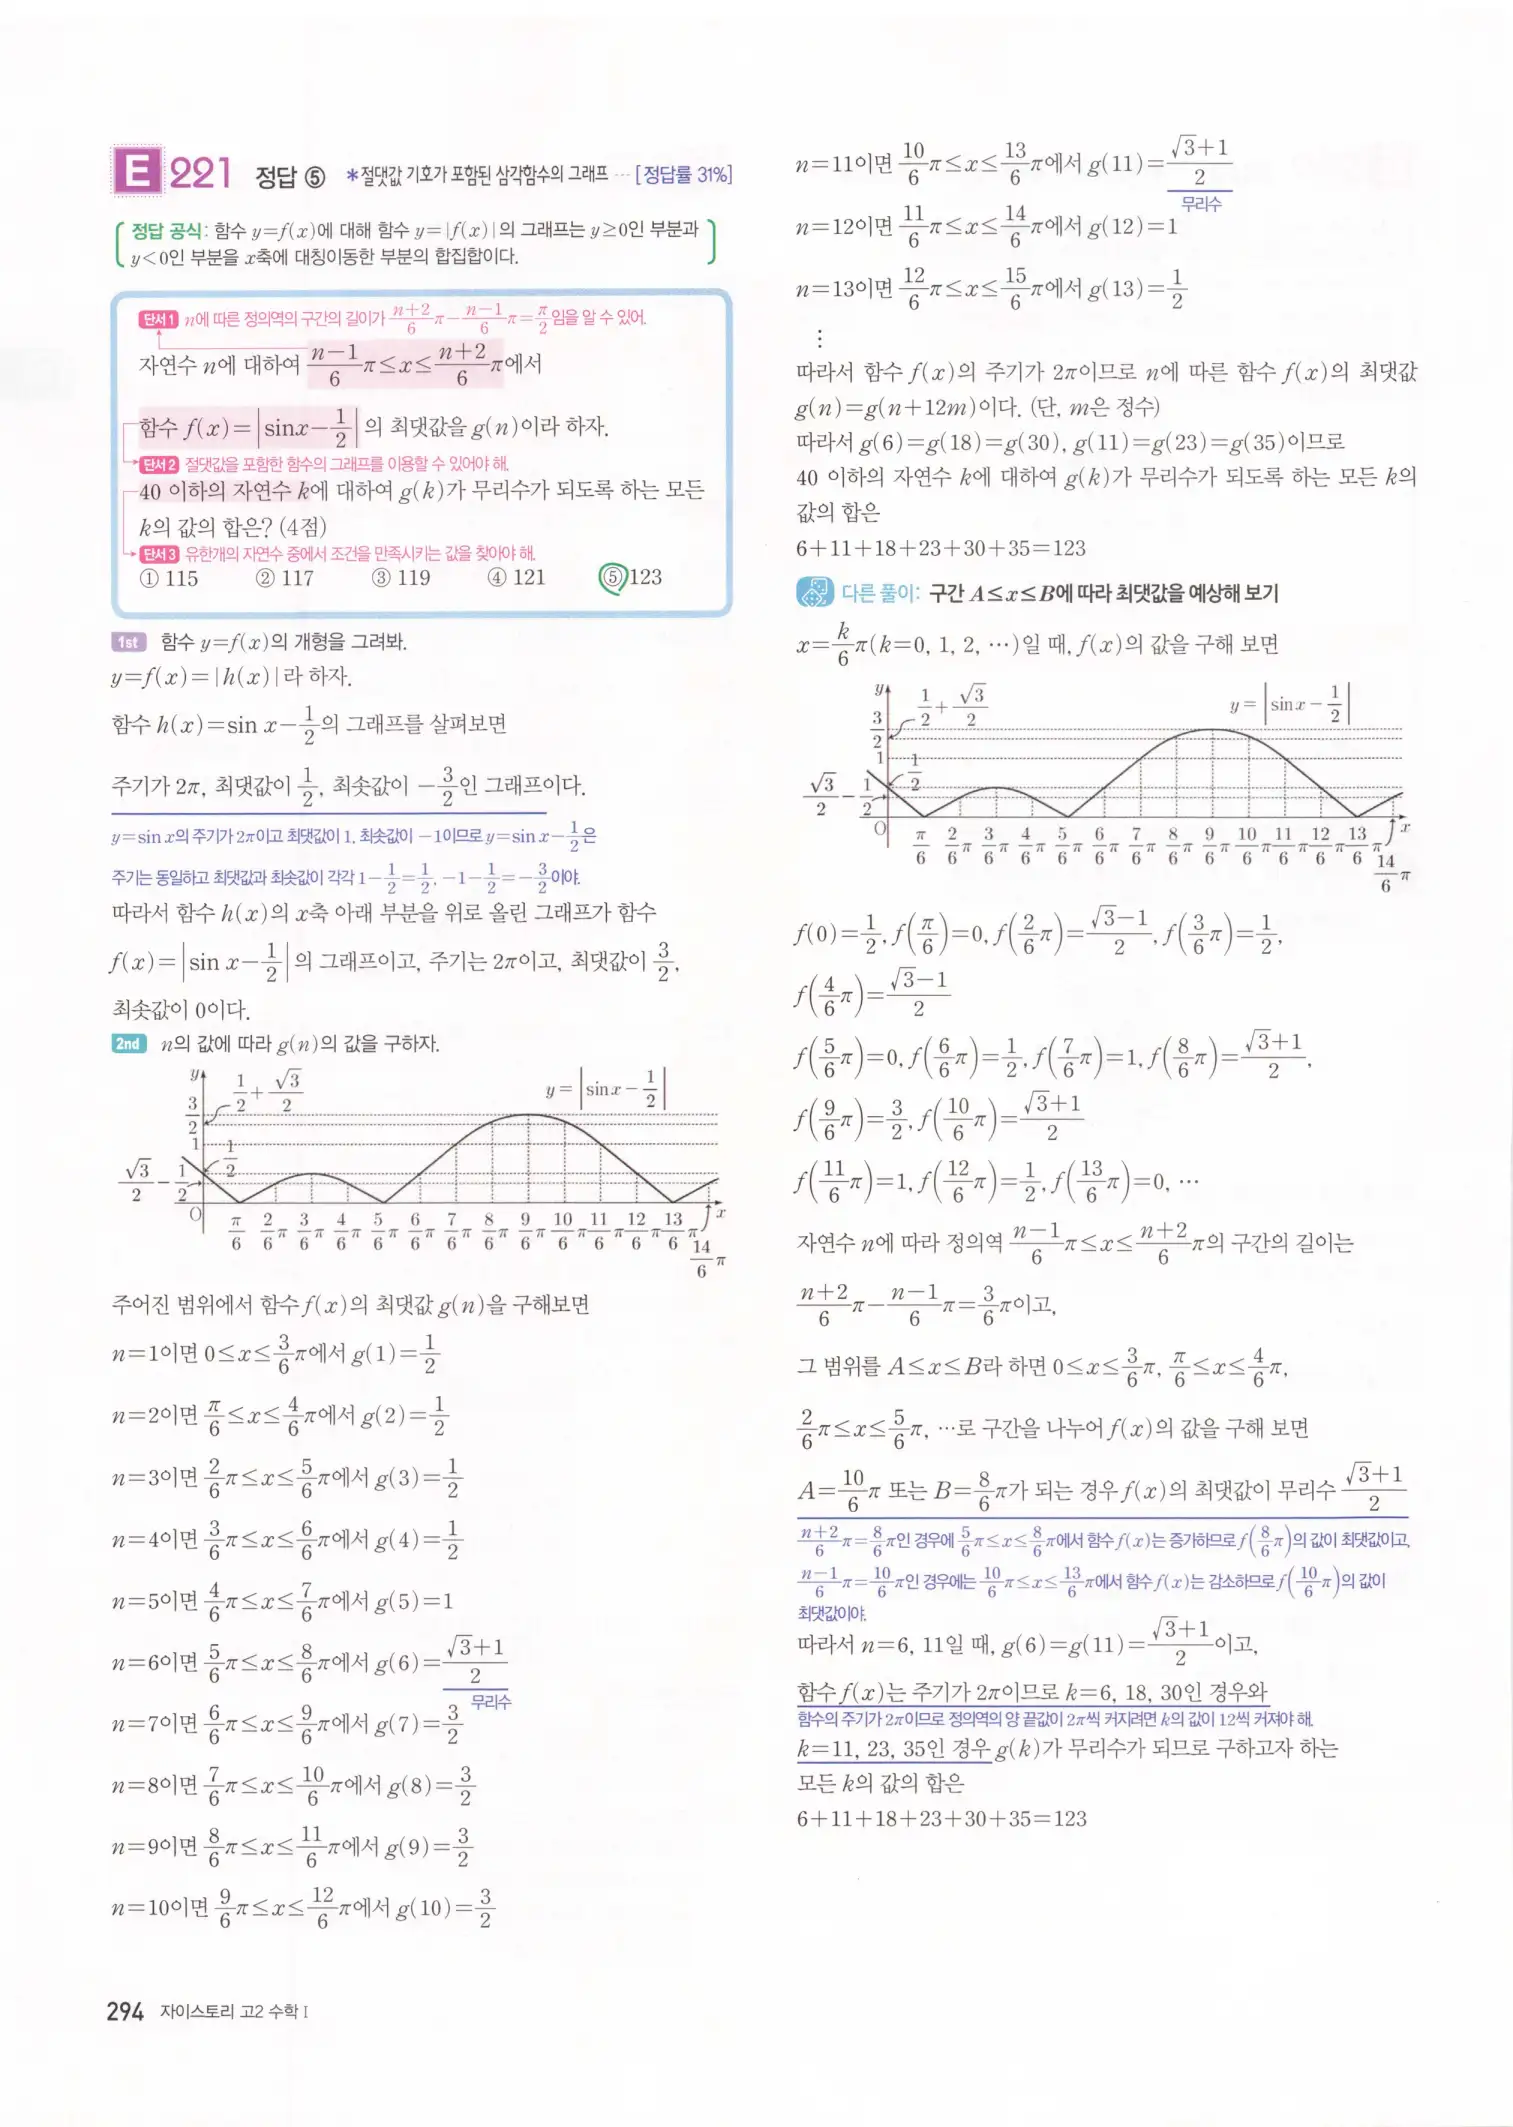 E 221 정답 ⑤ *절댓값 기호가 포함된 삼각함수의 그래프 ··· [정답률 31%]
정답 공식: 함수 y=f(x)에 대해 함수 y=|f(x)|의 그래프는 y≥0인 부분과
y<0인 부분을 x축에 대칭이동한 부분의 합집합이다.
단서1 n에 따른 정의역의 구간의 길이가 (n+2)/6 π − (n−1)/6 π = π/2 임을 알 수 있어.
자연수 n에 대하여 (n−1)/6 π ≤ x ≤ (n+2)/6 π에서
함수 f(x)=|sinx−1/2|의 최댓값을 g(n)이라 하자.
단서2 절댓값을 포함한 함수의 그래프를 이용할 수 있어야 해.
40 이하의 자연수 k에 대하여 g(k)가 무리수가 되도록 하는 모든
k의 값의 합은? (4점)
단서3 유한개의 자연수 중에서 조건을 만족시키는 값을 찾아야 해.
① 115 ② 117 ③ 119 ④ 121 ⑤ 123
1st 함수 y=f(x)의 개형을 그려봐.
y=f(x)=|h(x)|라 하자.
함수 h(x)=sin x−1/2의 그래프를 살펴보면
주기가 2π, 최댓값이 1/2, 최솟값이 −3/2인 그래프이다.
y=sin x의 주기가 2π이고 최댓값이 1, 최솟값이 −1이므로 y=sin x−1/2은
주기는 동일하고 최댓값과 최솟값이 각각 1−1/2=1/2, −1−1/2=−3/2이야.
따라서 함수 h(x)의 x축 아래 부분을 위로 올린 그래프가 함수
f(x)=|sin x−1/2|의 그래프이고, 주기는 2π이고, 최댓값이 3/2,
최솟값이 0이다.
2nd n의 값에 따라 g(n)의 값을 구하자.
y 1/2+√3/2 y=|sinx−1/2|
3/2
1 1/2
√3/2−1/2
O π/6 2/6π 3/6π 4/6π 5/6π 6/6π 7/6π 8/6π 9/6π 10/6π 11/6π 12/6π 13/6π x
14/6π
주어진 범위에서 함수 f(x)의 최댓값 g(n)을 구해보면
n=1이면 0≤x≤3/6π에서 g(1)=1/2
n=2이면 π/6≤x≤4/6π에서 g(2)=1/2
n=3이면 2/6π≤x≤5/6π에서 g(3)=1/2
n=4이면 3/6π≤x≤6/6π에서 g(4)=1/2
n=5이면 4/6π≤x≤7/6π에서 g(5)=1
n=6이면 5/6π≤x≤8/6π에서 g(6)=(√3+1)/2
무리수
n=7이면 6/6π≤x≤9/6π에서 g(7)=3/2
n=8이면 7/6π≤x≤10/6π에서 g(8)=3/2
n=9이면 8/6π≤x≤11/6π에서 g(9)=3/2
n=10이면 9/6π≤x≤12/6π에서 g(10)=3/2
n=11이면 10/6π≤x≤13/6π에서 g(11)=(√3+1)/2
무리수
n=12이면 11/6π≤x≤14/6π에서 g(12)=1
n=13이면 12/6π≤x≤15/6π에서 g(13)=1/2
⋮
따라서 함수 f(x)의 주기가 2π이므로 n에 따른 함수 f(x)의 최댓값
g(n)=g(n+12m)이다. (단, m은 정수)
따라서 g(6)=g(18)=g(30), g(11)=g(23)=g(35)이므로
40 이하의 자연수 k에 대하여 g(k)가 무리수가 되도록 하는 모든 k의
값의 합은
6+11+18+23+30+35=123
다른 풀이: 구간 A≤x≤B에 따라 최댓값을 예상해 보기
x=k/6π(k=0, 1, 2, ···)일 때, f(x)의 값을 구해 보면
y 1/2+√3/2 y=|sinx−1/2|
3/2
1 1/2
√3/2−1/2
O π/6 2/6π 3/6π 4/6π 5/6π 6/6π 7/6π 8/6π 9/6π 10/6π 11/6π 12/6π 13/6π x
14/6π
f(0)=1/2, f(π/6)=0, f(2/6π)=(√3−1)/2, f(3/6π)=1/2,
f(4/6π)=(√3−1)/2
f(5/6π)=0, f(6/6π)=1/2, f(7/6π)=1, f(8/6π)=(√3+1)/2,
f(9/6π)=3/2, f(10/6π)=(√3+1)/2
f(11/6π)=1, f(12/6π)=1/2, f(13/6π)=0, ···
자연수 n에 따라 정의역 (n−1)/6 π≤x≤(n+2)/6 π의 구간의 길이는
(n+2)/6 π−(n−1)/6 π=3/6π이고,
그 범위를 A≤x≤B라 하면 0≤x≤3/6π, π/6≤x≤4/6π,
2/6π≤x≤5/6π, ···로 구간을 나누어 f(x)의 값을 구해 보면
A=10/6π 또는 B=8/6π가 되는 경우 f(x)의 최댓값이 무리수 (√3+1)/2
(n+2)/6 π=8/6π인 경우에 5/6π≤x≤8/6π에서 함수 f(x)는 증가하므로 f(8/6π)의 값이 최댓값이고,
(n−1)/6 π=10/6π인 경우에는 10/6π≤x≤13/6π에서 함수 f(x)는 감소하므로 f(10/6π)의 값이
최댓값이야.
따라서 n=6, 11일 때, g(6)=g(11)=(√3+1)/2이고,
함수 f(x)는 주기가 2π이므로 k=6, 18, 30인 경우와
함수의 주기가 2π이므로 정의역의 양 끝값이 2π씩 커지려면 k의 값이 12씩 커져야 해.
k=11, 23, 35인 경우 g(k)가 무리수가 되므로 구하고자 하는
모든 k의 값의 합은
6+11+18+23+30+35=123
294 자이스토리 고2 수학 I